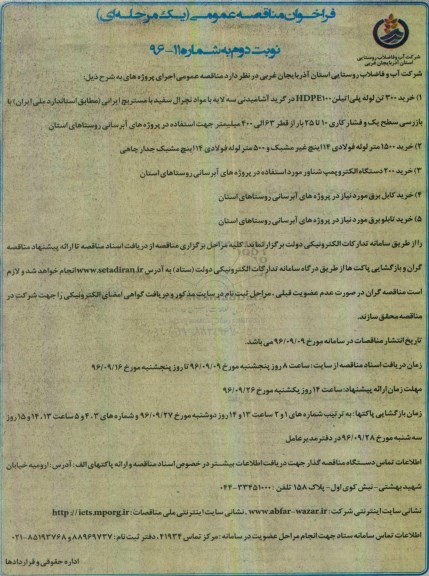 فراخوان مناقصه عمومی (یک مرحله ای)
نوبت دوم به شماره ۱۱-۹۶
شرکت آب و فاضلاب روستایی
استان آذربایجان غربی
شرکت آب و فاضلاب روستایی استان آذربایجان غربی در نظر دارد مناقصه عمومی اجرای پروژه های به شرح ذیل:
۱) خرید ۳۰۰ تن لوله پلی اتیلن HDPE۱۰۰ در گرید آشامیدنی سه لایه با مواد نچرال سفید با مستربچ ایرانی (مطابق استاندارد ملی ایران) با
بازرسی سطح یک و فشار کاری ۱۰ تا ۲۵ بار از قطر ۶۳ الی ۲۰۰ میلیمتر جهت استفاده در پروژه های آبرسانی روستاهای استان
۲) خرید ۱۵۰۰ متر لوله فولادی ۱۴ اینچ غیر مشبک و ۵۰۰ متر لوله فولادی ۱۴ اینچ مشبک جدار چاهی
۳) خرید ۲۰۰ دستگاه الکتروپمپ شناور مورد استفاده در پروژه های آبرسانی روستاهای استان
۴) خرید کابل برق مورد نیاز در پروژه های آبرسانی روستاهای استان
۵) خرید تابلو برق مورد نیاز در پروژه های آبرسانی روستاهای استان
را از طریق سامانه تدارکات الکترونیکی دولت برگزار نماید. کلیه مراحل برگزاری مناقصه از دریافت اسناد مناقصه تا ارائه پیشنهاد مناقصه
گران و بازگشایی پاکت ها از طریق درگاه سامانه تدارکات الکترونیکی دولت (ستاد) به آدرس www.setadiran.ir انجام خواهد شد و لازم
است مناقصه گران در صورت عدم عضویت قبلی، مراحل ثبت نام در سایت مذکور و دریافت گواهی امضای الکترونیکی را جهت شرکت در
مناقصه محقق سازند.
تاریخ انتشار مناقصات در سامانه مورخ ۹۶/۰۹/۰۹ می باشد.
زمان دریافت اسناد مناقصه از سایت: ساعت ۸ روز پنجشنبه مورخ ۹۶/۰۹/۰۹ تا روز پنجشنبه مورخ ۹۶/۰۹/۱۶
مهلت زمان ارائه پیشنهاد: ساعت ۱۴ روز یکشنبه مورخ ۹۶/۰۹/۲۶
زمان بازگشایی پاکتها: به ترتیب شماره های ۱ و ۲ ساعت ۱۳ و ۱۴ روز دوشنبه مورخ ۹۶/۰۹/۲۷ و شماره های ۳، ۴ و ۵ ساعت ۱۳، ۱۴ و ۱۵ روز
سه شنبه مورخ ۹۶/۰۹/۲۸ در دفتر مدیر عامل
اطلاعات تماس دستگاه مناقصه گذار جهت دریافت اطلاعات بیشتر در خصوص اسناد مناقصه و ارائه پاکتهای الف: آدرس: ارومیه خیابان
شهید بهشتی - نبش کوی اول - پلاک ۱۵۸ تلفن: ۳۳۴۵۱۰۰۰-۰۴۴
نشانی سایت اینترنتی شرکت: www.abfar-wazar.ir، نشانی سایت اینترنتی ملی مناقصات: http://iets.mporg.ir
اطلاعات تماس سامانه ستاد جهت انجام مراحل عضویت در سامانه: مرکز تماس ۴۱۹۳۴، دفتر ثبت نام: ۸۸۹۶۹۷۳۷ و ۸۵۱۹۳۷۶۸-۰۲۱
اداره حقوقی و قراردادها